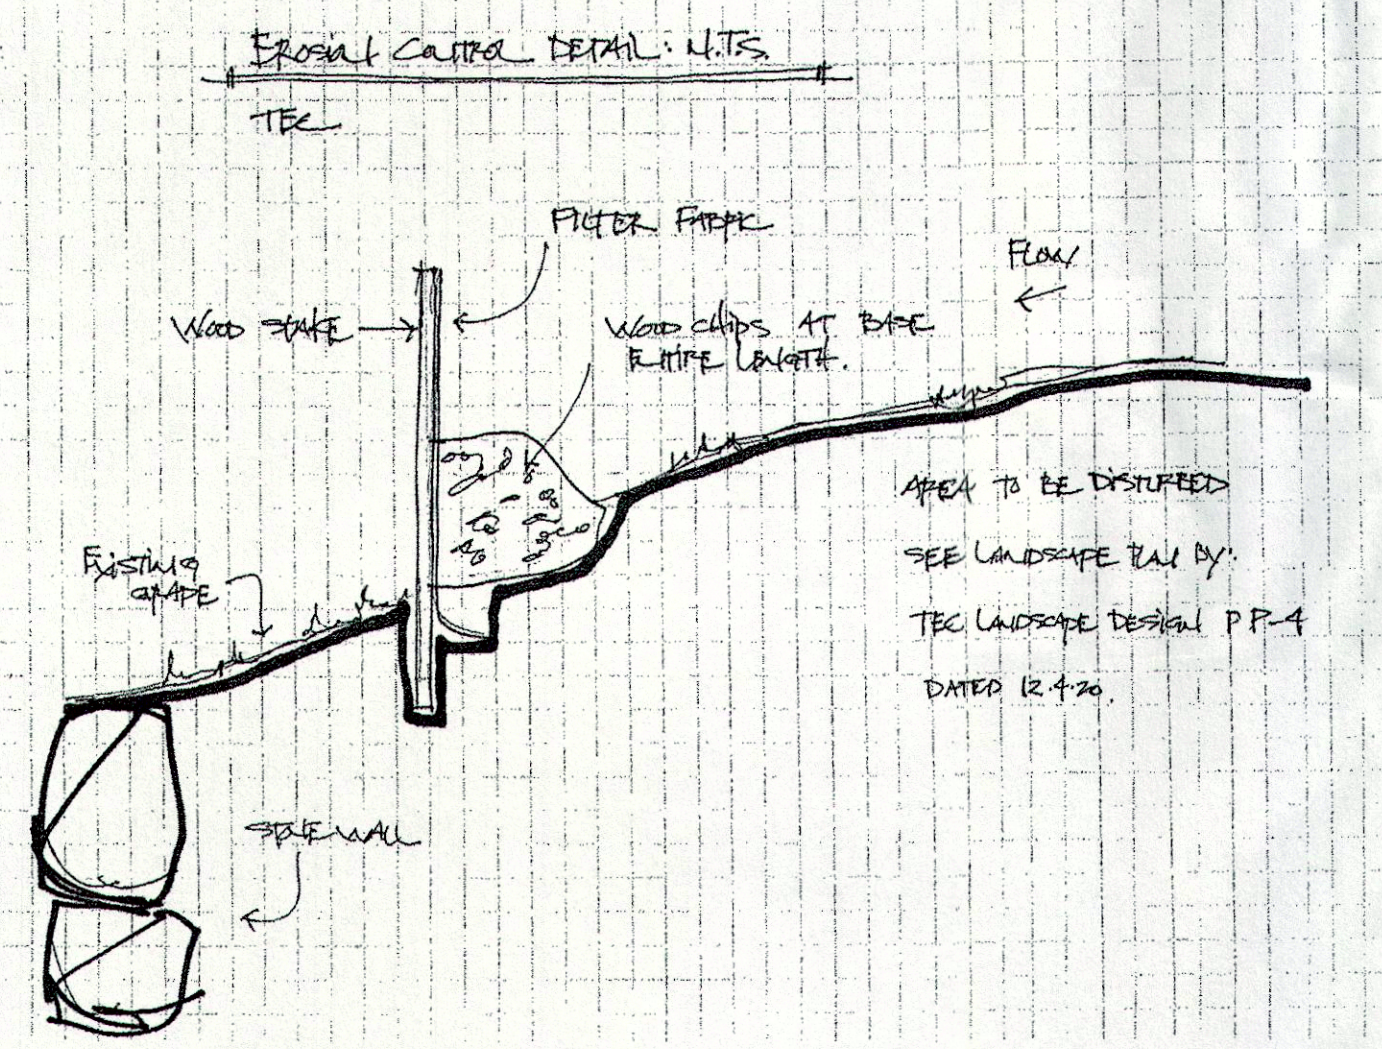 EROSION CONTROL DETAIL: N.T.S.
TEC
FILTER FABRIC
FLOW
WOOD STAKE
WOOD CHIPS AT BASE
ENTIRE LENGTH.
AREA TO BE DISTURBED
EXISTING
GRADE
SEE LANDSCAPE PLAN BY:
TEC LANDSCAPE DESIGN P P-4
DATED 12.4.20.
STONE WALL